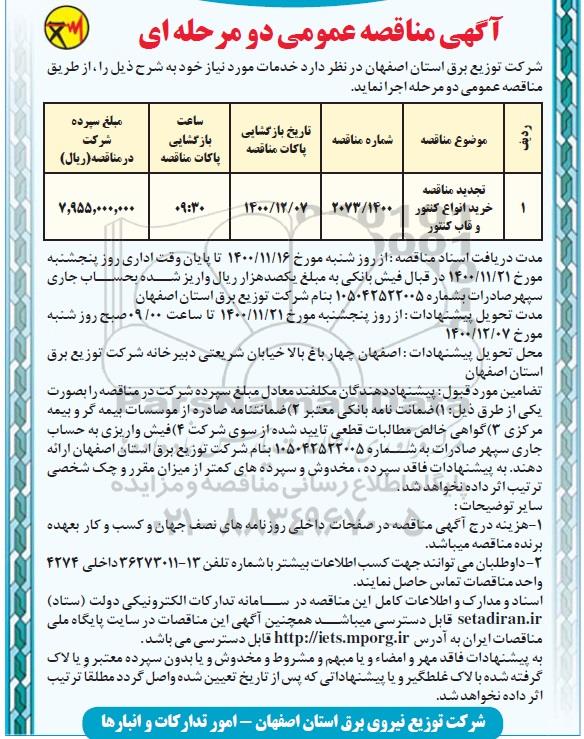 آگهی مناقصه عمومی دو مرحله ای
شرکت توزیع برق استان اصفهان در نظر دارد خدمات مورد نیاز خود به شرح ذیل را، از طریق
مناقصه عمومی دو مرحله اجرا نماید.
ردیف | موضوع مناقصه | شماره مناقصه | تاریخ بازگشایی پاکات مناقصه | ساعت بازگشایی پاکات مناقصه | مبلغ سپرده شرکت درمناقصه(ریال)
۱ | تجدید مناقصه خرید انواع کنتور و قاب کنتور | ۲۰۷۳/۱۴۰۰ | ۱۴۰۰/۱۲/۰۷ | ۰۹:۳۰ | ۷,۹۵۵,۰۰۰,۰۰۰
مدت دریافت اسناد مناقصه : از روز شنبه مورخ ۱۴۰۰/۱۱/۱۶ تا پایان وقت اداری روز پنجشنبه
مورخ ۱۴۰۰/۱۱/۲۱ در قبال فیش بانکی به مبلغ یکصدهزار ریال واریز شده بحساب جاری
سپهر صادرات بشماره ۰۱۰۵۰۴۲۵۲۲۰۰۵ بنام شرکت توزیع برق استان اصفهان
مدت تحویل پیشنهادات : از روز پنجشنبه مورخ ۱۴۰۰/۱۱/۲۱ تا ساعت ۰۹/۰۰ صبح روز شنبه
مورخ ۱۴۰۰/۱۲/۰۷
محل تحویل پیشنهادات : اصفهان چهار باغ بالا خیابان شریعتی دبیرخانه شرکت توزیع برق
استان اصفهان
تضامین مورد قبول: پیشنهاددهندگان مکلفند معادل مبلغ سپرده شرکت در مناقصه را بصورت
یکی از طرق ذیل : ۱)ضمانت نامه بانکی معتبر ۲)ضمانتنامه صادره از موسسات بیمه گر و بیمه
مرکزی ۳)گواهی خالص مطالبات قطعی تایید شده از سوی شرکت ۴)فیش واریزی به حساب
جاری سپهر صادرات به شماره ۰۱۰۵۰۴۲۵۲۲۰۰۵ بنام شرکت توزیع برق استان اصفهان ارائه
دهند. به پیشنهادات فاقد سپرده ، مخدوش و سپرده های کمتر از میزان مقرر و چک شخصی
ترتیب اثر داده نخواهد شد.
سایر توضیحات :
۱-هزینه درج آگهی مناقصه در صفحات داخلی روزنامه های نصف جهان و کسب و کار بعهده
برنده مناقصه میباشد.
۲- داوطلبان می توانند جهت کسب اطلاعات بیشتر با شماره تلفن ۱۳-۳۶۲۷۳۰۱۱ داخلی ۴۲۷۴
واحد مناقصات تماس حاصل نمایند.
اسناد و مدارک و اطلاعات کامل این مناقصه در سامانه تدارکات الکترونیکی دولت (ستاد)
setadiran.ir قابل دسترسی میباشد همچنین آگهی این مناقصات در سایت پایگاه ملی
مناقصات ایران به آدرس http://iets.mporg.ir قابل دسترسی می باشد.
به پیشنهادات فاقد مهر و امضاء و یا مبهم و مشروط و مخدوش و یا بدون سپرده معتبر و یا لاک
گرفته شده با لاک غلطگیر و یا پیشنهاداتی که پس از تاریخ تعیین شده واصل گردد مطلقا ترتیب
اثر داده نخواهد شد.
شرکت توزیع نیروی برق استان اصفهان - امور تدارکات و انبارها
پایگاه اطلاع رسانی مناقصه و مزایده
۰۲۱-۸۸۳۴۹۶۷۰-۵